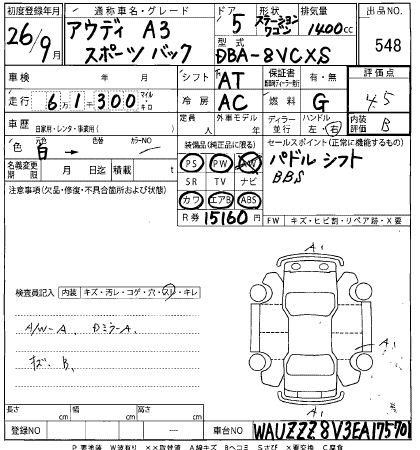 初度登録年月 通称車名・グレード ドア 形状 排気量 出品NO.
26年9月 アウディ A3 スポーツバック 5 ステーションワゴン 1400cc 548
型式 DBA-8VCXS
車検 年 月 日 シフト AT 保証書 有・無 評価点
走行 6万1300 マイル・キロ 冷房 AC 燃料 G 4.5
車歴 自家用・レンタ・事業用( ) 定員 人 外車モデル 年 ディーラー・並行 ハンドル 左・右 内装評価 B
色 元色 白 → 色替 カラーNO 装備品(純正品に限る) セールスポイント(正常に機能するもの)
名義変更期限 月 日迄 月迄 PS PW AW パドルシフト
SR TV ナビ BBS
注意事項(欠品・修復・不具合箇所および状態) カワ エアB ABS
R券 15160円 FW キズ・ヒビ割・リペア跡・X要
検査員記入 内装 キズ・汚レ・コゲ・穴・スレ・キレ
A/W-A. Dミラ-A.
キズ、B.
A1
A1
長さ cm 幅 cm 高さ cm
登録NO — 車台NO WAUZZZ8V3EA175701
P要塗装 W波有り ××取替済 A線キズ Bヘコミ Sさび ×要交換 C腐食